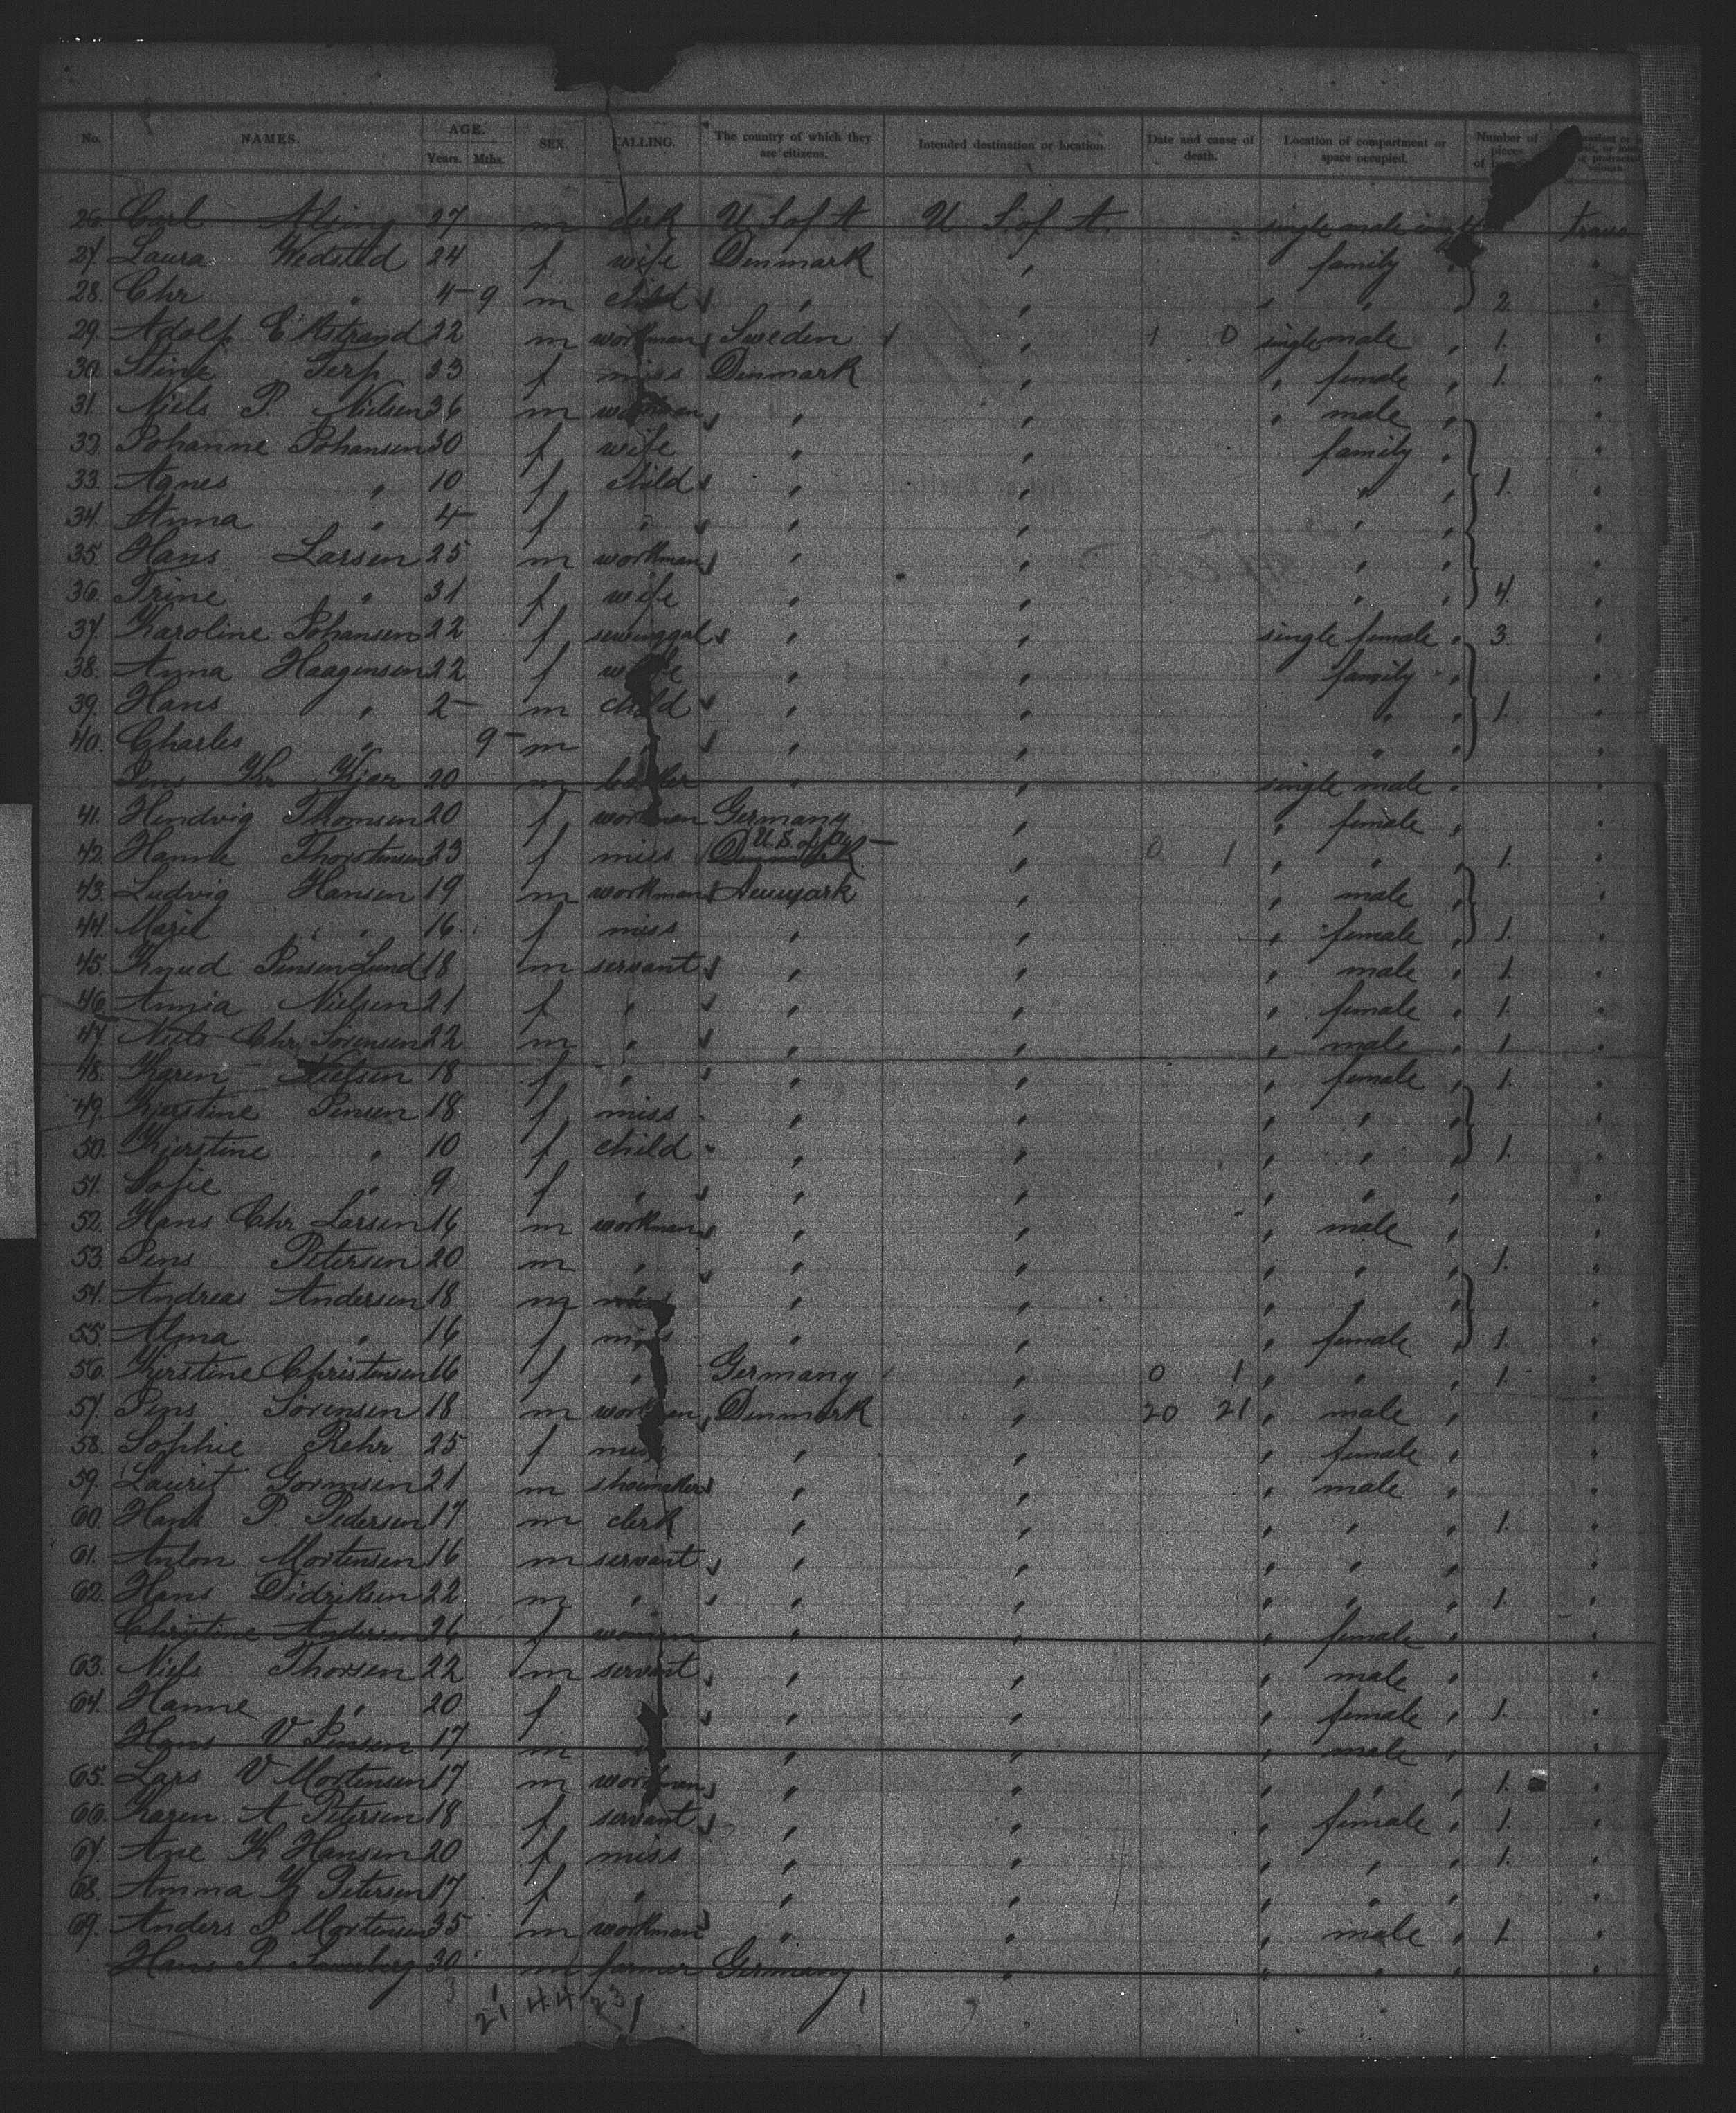 No. NAMES. AGE. Years. Mths. SEX. CALLING. The country of which they are citizens. Intended destination or location. Date and cause of death. Location of compartment or space occupied. Number of pieces of
26. Carl 27 m clerk U S of A U S. of A. single male trans
27. Laura Wedsted 24 f wife Denmark " family "
28. Chr " 4 9 m child " " " " 2 "
29. Adolf Ekstrand 22 m workman Sweden " 1 0 single male " 1. "
30. Stine Terp 33 f miss Denmark " " female " 1. "
31. Niels P. Nielsen 36 m workman " " " male " "
32. Johanne Johansen 30 f wife " " family " "
33. Agnes " 10 f child " " " " 1. "
34. Anna " 4 f " " " " " "
35. Hans Larsen 25 m workman " " " " "
36. Trine " 31 f wife " " " " 4. "
37. Karoline Johansen 22 f " " single female " 3. "
38. Anna Haagensen 22 f wife " " family " "
39. Hans " 2 m child " " " " 1. "
40. Charles " 9 m " " " " " "
Jens Kr Kjær 20 m " " single male " "
41. Hendvig Thomsen 20 f workmen Germany " " female " "
42. Hanne Thorstensen 23 f miss U. S. of A " 0 1 " " " 1. "
43. Ludvig Hansen 19 m workman Denmark " " male " "
44. Marie " 16 f miss " " " female " 1. "
45. Knud Jensen Lund 18 m servant " " " male " 1. "
46. Annia Nielsen 21 f " " " " female " 1. "
47. Niels Chr Sörensen 22 m " " " " male " 1. "
48. Karen Nielsen 18 f " " " " female " 1. "
49. Kjerstine Jensen 18 f miss " " " " " "
50. Kjerstine " 10 f child " " " " " 1. "
51. Sofie " 9 f " " " " " " "
52. Hans Chr Larsen 16 m workman " " " male " "
53. Jens Petersen 20 m " " " " " " 1. "
54. Andreas Andersen 18 m " " " " " "
55. Alma " 16 f miss " " " female " 1. "
56. Kirstine Christensen 16 f " Germany " 0 1 " " " 1. "
57. Jens Sörensen 18 m workmen Denmark " 20 21 " male " "
58. Sophie Rehr 25 f miss " " " female " "
59. Laurit Gormsen 21 m shoemaker " " " male " "
60. Hans P. Pedersen 17 m clerk " " " " " 1. "
61. Anton Mortensen 16 m servant " " " " " "
62. Hans Didriksen 22 m " " " " " " 1. "
Christine Andersen 26 f women " " " female " "
63. Niels Thorsen 22 m servant " " " male " "
64. Hanne " 20 f " " " female " 1. "
Hans V Jensen 17 m " " " male " "
65. Lars V Mortensen 17 m workman " " " " " 1. "
66. Karen A Petersen 18 f servant " " " female " 1. "
67. Ane K Hansen 20 f miss " " " " " 1. "
68. Amma K Petersen 17 f " " " " " " "
69. Anders P Mortensen 35 m workman " " " male " 1. "
Hans P 30 m farmer Germany " " " " "
21 44 23